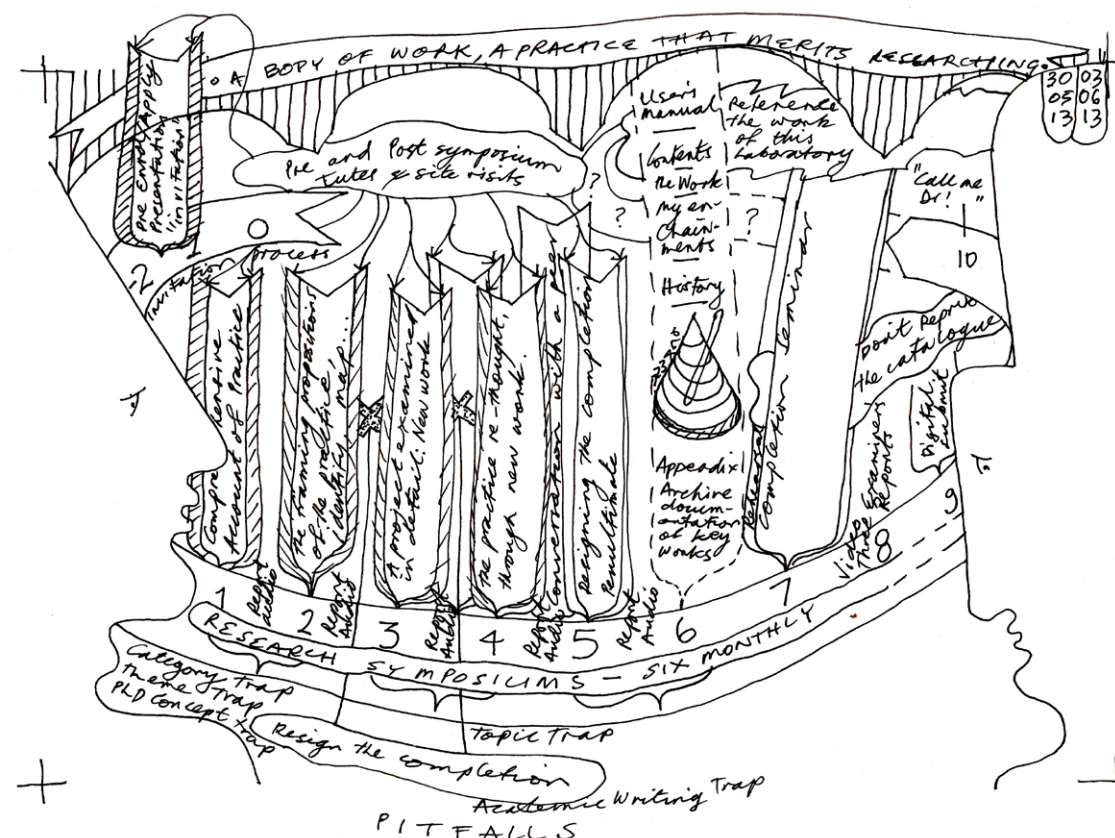 A BODY OF WORK, A PRACTICE THAT MERITS RESEARCHING.
30 03
05 06
13 13
Pre Entry / Apply
Presentation
"invitation"
-2
Invitation process
0
Pre and Post symposium
tutes & site visits
?
?
?
User's
manual
Contents
the Work
my en-
chain-
ments
History
Appendix
Archive
docum-
entation
of key
works
Reference
the work
of this
Laboratory
"Call me
Dr! "
10
Don't Reprint
the catalogue
Comprehensive
Account of Practice
The framing propositions
of the practice
identity, map...
A project examined
in detail: New work
The practice re-thought,
through new work.
Conversation with a peer
Resigning the completion
Penultimate
Rehearsal
Completion Seminar
Video
Three Examiners
Reports
Digital
1
Report
audio
2
Report
Audio
3
Report
Audio
4
Report
Audio
5
Report
Audio
6
7
8
9
RESEARCH SYMPOSIUMS - SIX MONTHLY
Category Trap
Theme Trap
PhD Concept trap
Resign the completion
Topic Trap
Academic Writing Trap
PITFALLS